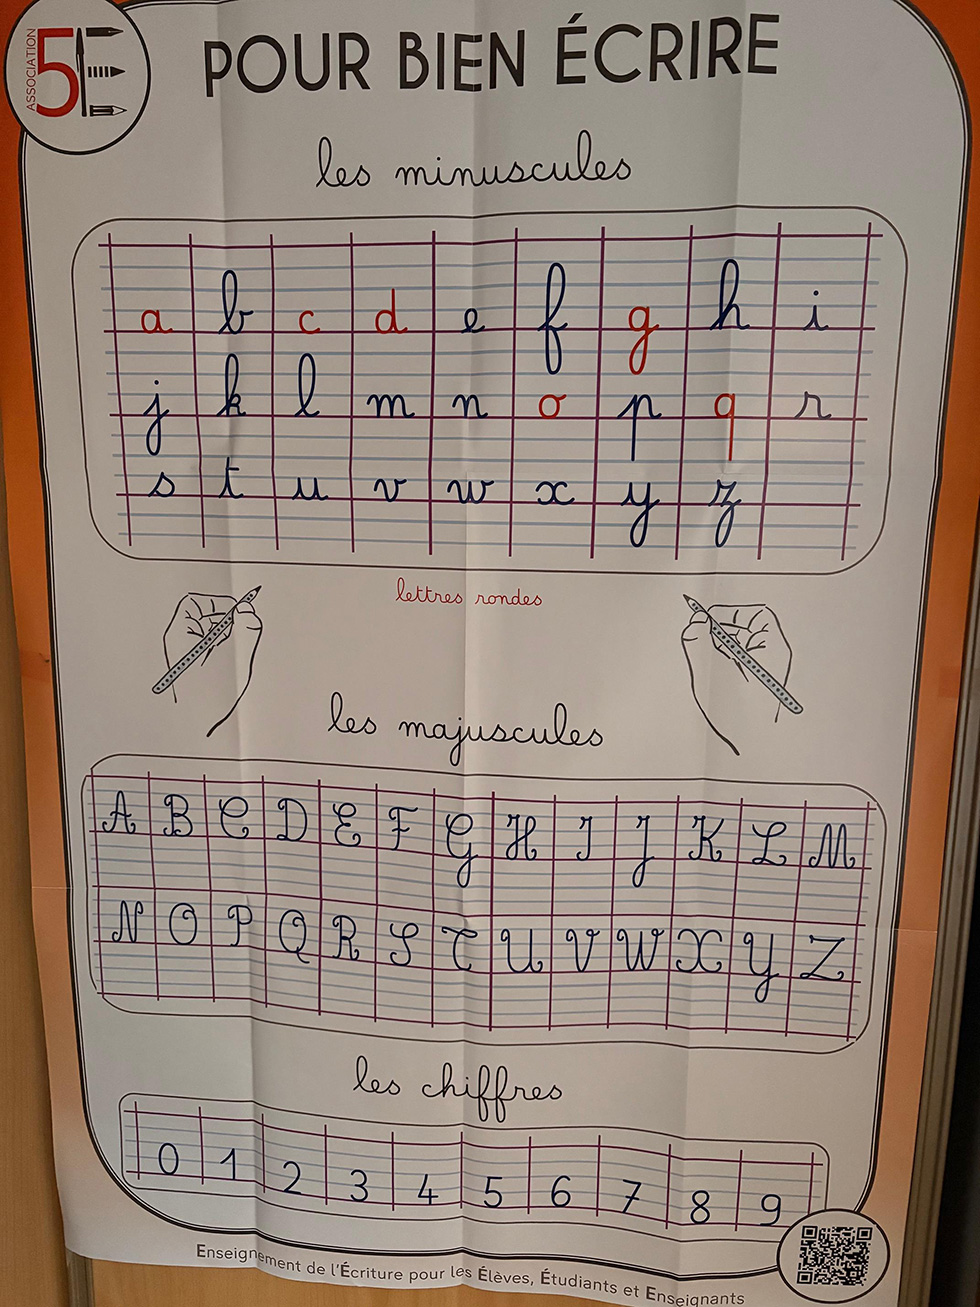 ASSOCIATION
5E
POUR BIEN ÉCRIRE
les minuscules
a b c d e f g h i
j k l m n o p q r
s t u v w x y z
lettres rondes
les majuscules
A B C D E F G H I J K L M
N O P Q R S T U V W X Y Z
les chiffres
0 1 2 3 4 5 6 7 8 9
Enseignement de l'Écriture pour les Élèves, Étudiants et Enseignants